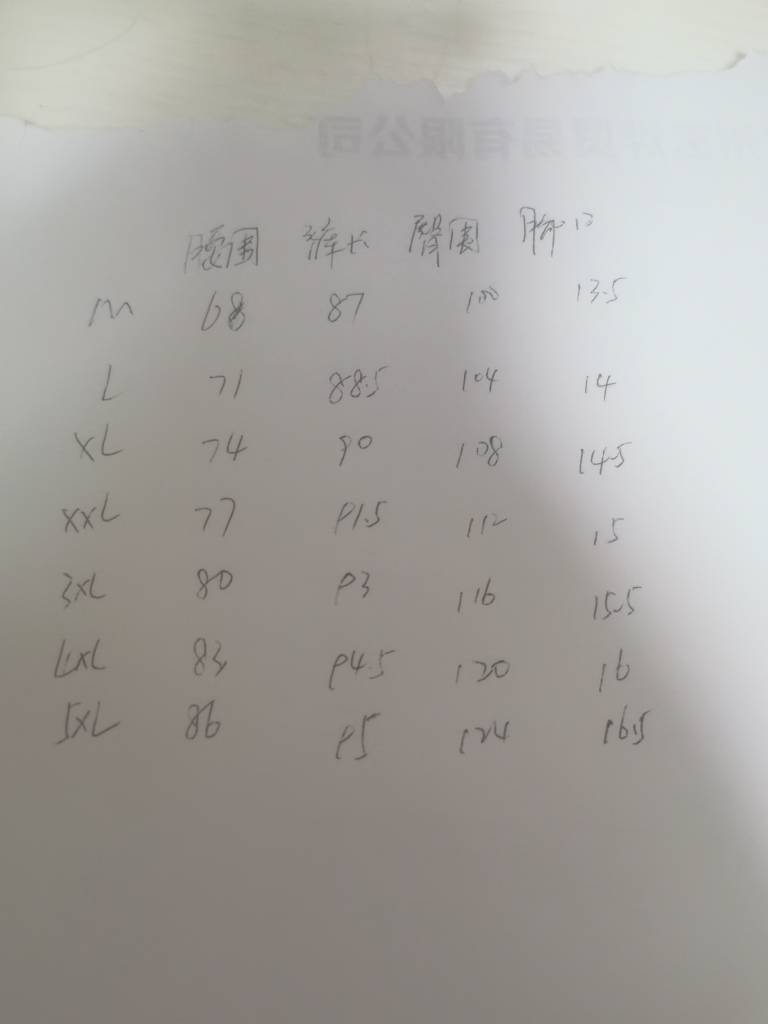 有限公司
腰围 裤长 臀围 脚口
M 68 87 100 13.5
L 71 88.5 104 14
XL 74 90 108 14.5
XXL 77 91.5 112 15
3XL 80 93 116 15.5
4XL 83 94.5 120 16
5XL 86 95 124 16.5